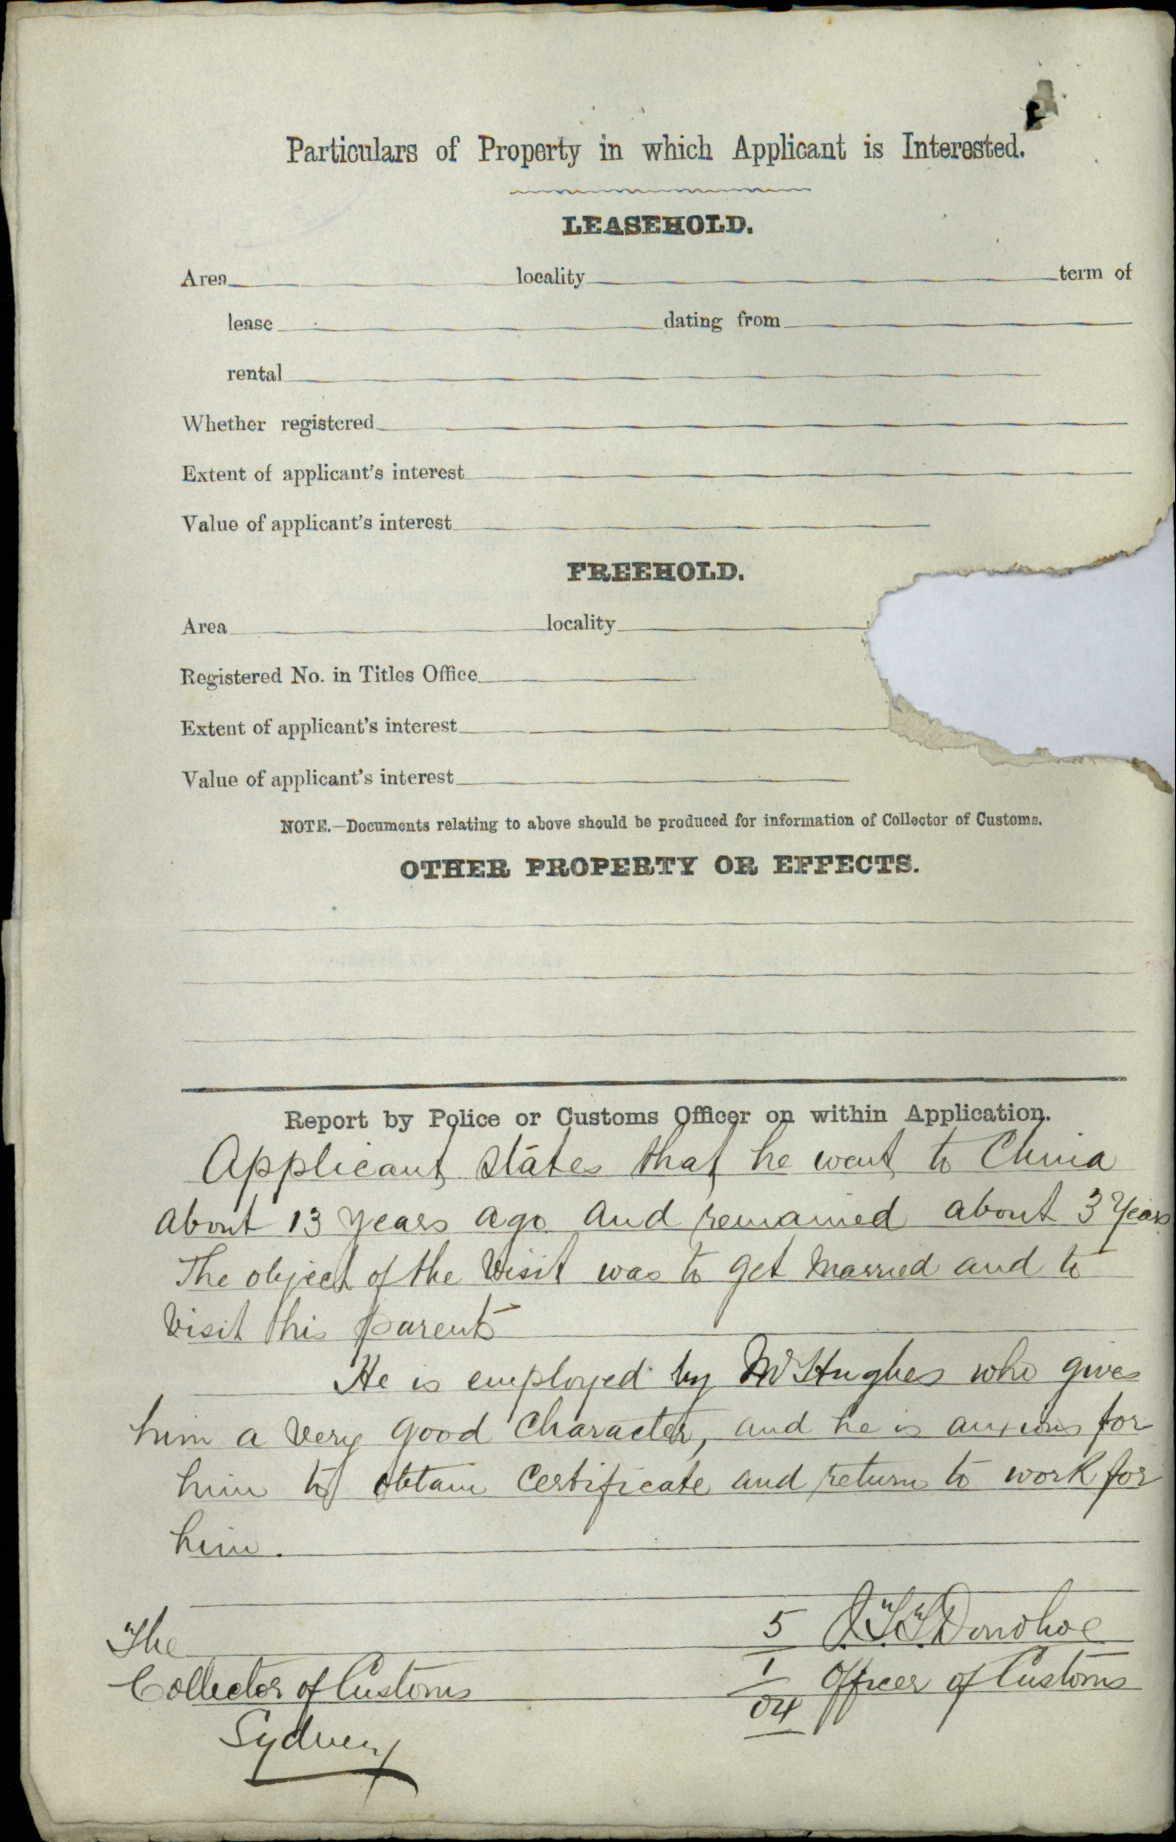 Particulars of Property in which Applicant is Interested.
LEASEHOLD.
Area locality term of
lease dating from
rental
Whether registered
Extent of applicant's interest
Value of applicant's interest
FREEHOLD.
Area locality
Registered No. in Titles Office
Extent of applicant's interest
Value of applicant's interest
NOTE.—Documents relating to above should be produced for information of Collector of Customs.
OTHER PROPERTY OR EFFECTS.
Report by Police or Customs Officer on within Application.
Applicant states that he went to China
about 13 years ago and remained about 3 Years
The object of the visit was to get married and to
visit his parents
He is employed by Mr Hughes who gives
him a very good character, and he is anxious for
him to obtain certificate and return to work for
him.
The 5 Donohoe
Collector of Customs 1 Officer of Customs
Sydney 04